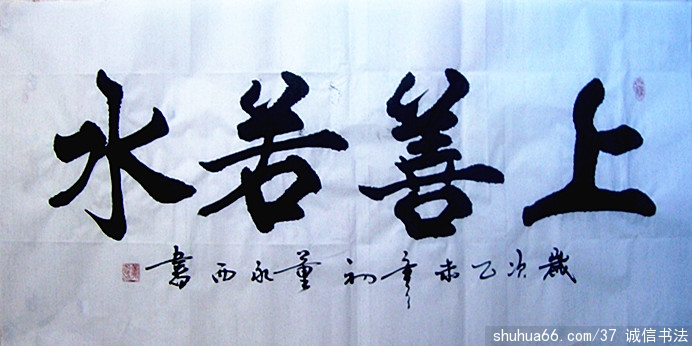 上善若水
岁次乙未年初董永西書
shuhua66.com/37 诚信书法